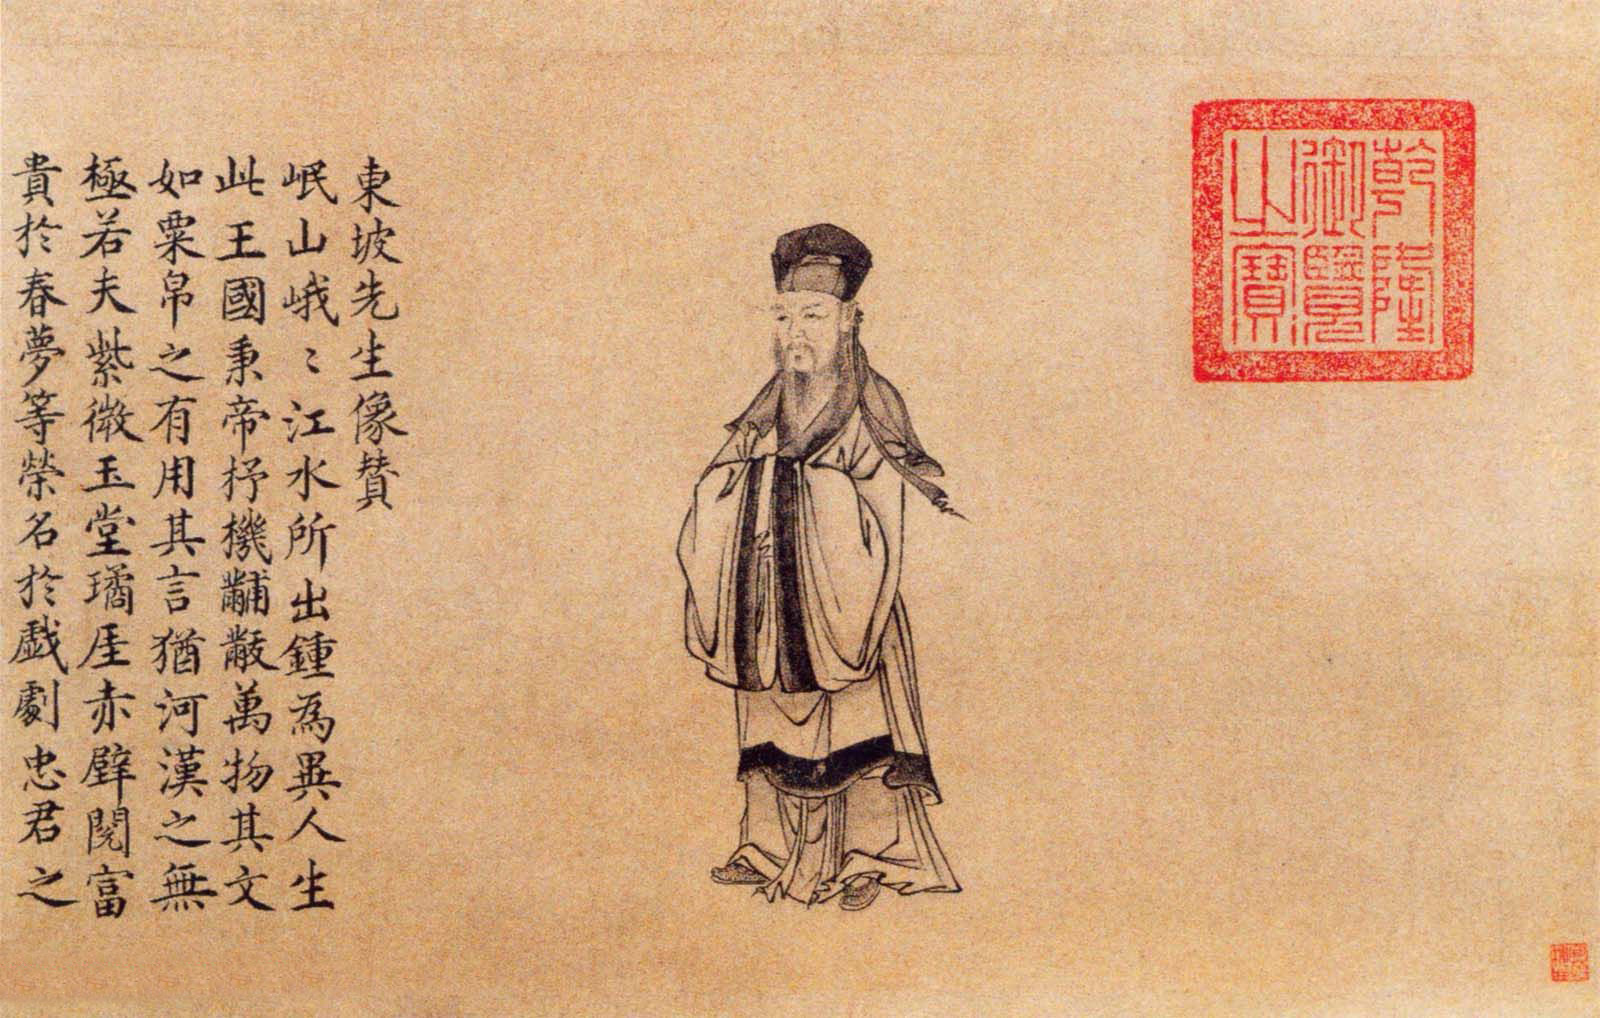 乾隆
御覽
之寶
東坡先生像賛
岷山峨〻江水所出鍾為異人生
此王國秉帝杼機黼黻萬物其文
如粟帛之有用其言猶河漢之無
極若夫紫微玉堂璚厓赤壁閱富
貴於春夢等榮名於戯劇忠君之